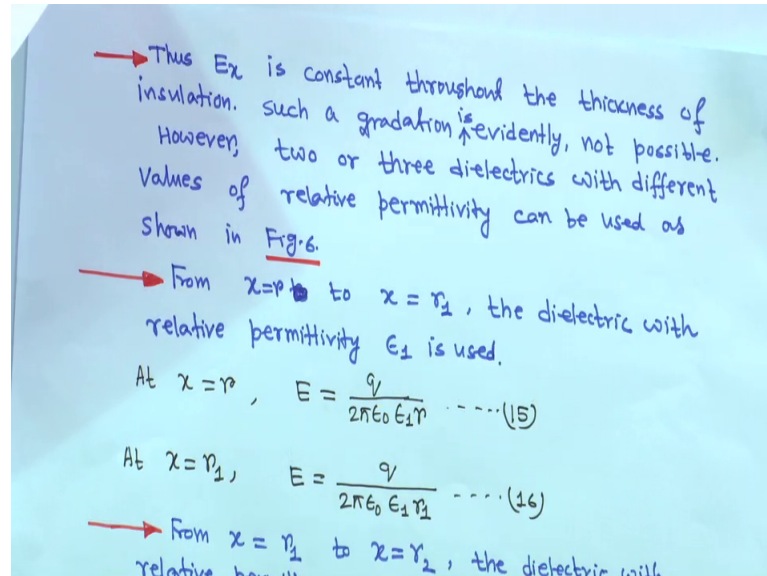 → Thus Ex is constant throughout the thickness of
insulation. Such a gradation is evidently, not possible.
However, two or three dielectrics with different
values of relative permittivity can be used as
shown in Fig.6.
→ From x=r to x = r1, the dielectric with
relative permittivity ϵ1 is used.
At x=r, E = q / 2πϵ0 ϵ1r -----(15)
At x=r1, E = q / 2πϵ0 ϵ1 r1 ----(16)
→ From x = r1 to x=r2, the dielectric with
relative